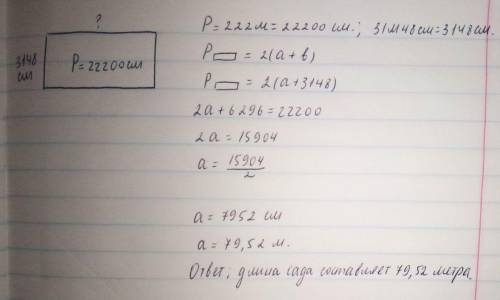 ?
3148
см
P=22200 см
P=222м=22200 см.; 31м48см=3148см.
P▭ = 2(a+b)
P▭ = 2(a+3148)
2a+6296=22200
2a=15904
a= 15904/2
a=7952 см
a=79,52 м.
Ответ; длина сада составляет 79,52 метра.